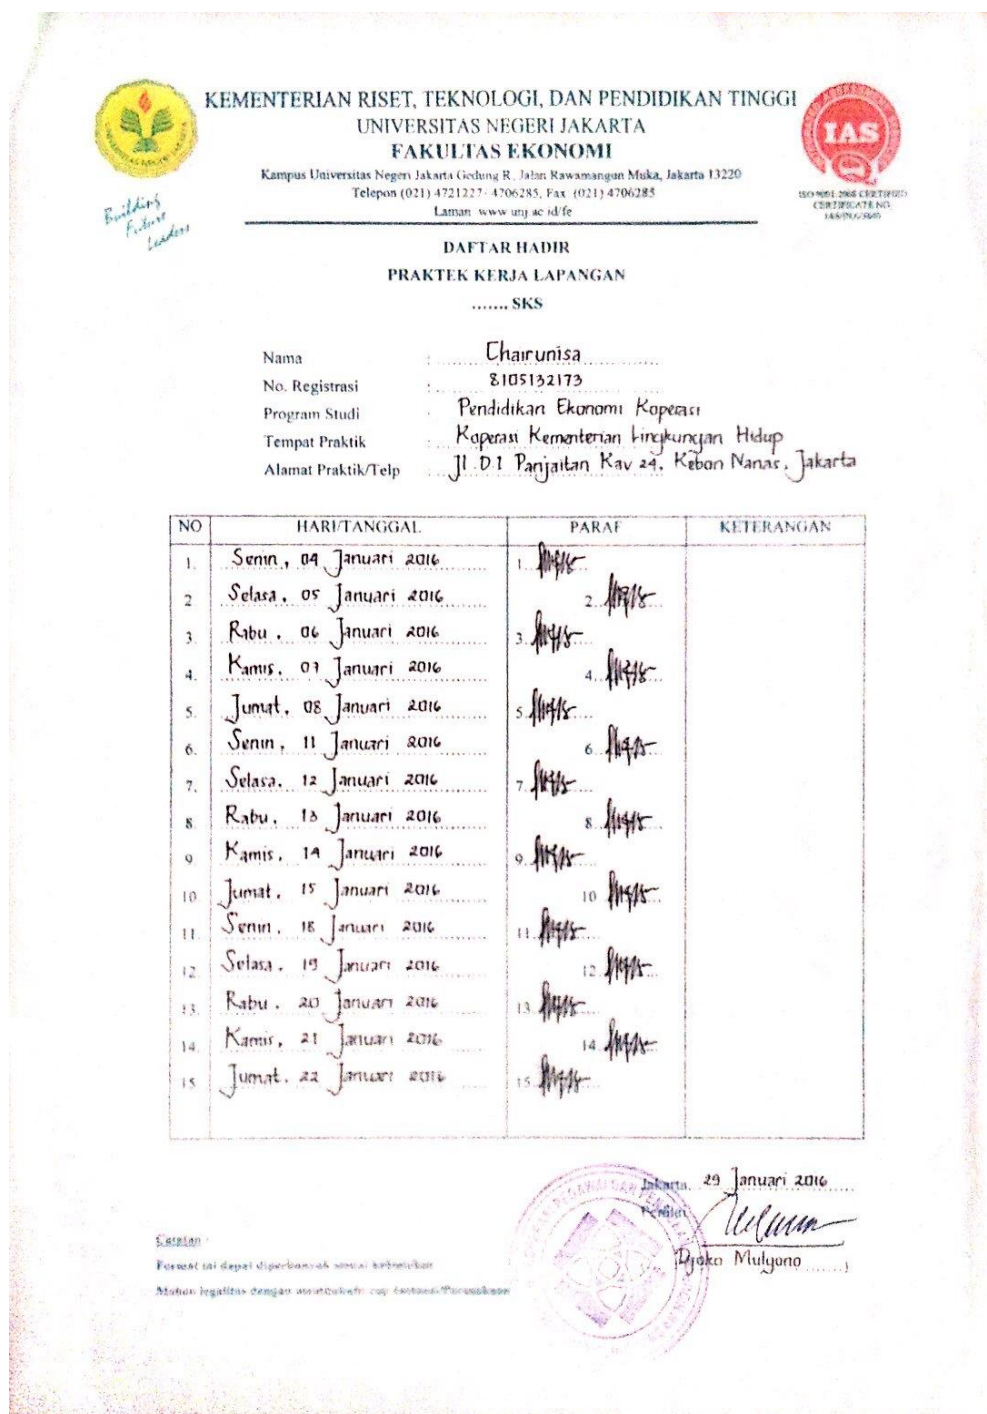 KEMENTERIAN RISET, TEKNOLOGI, DAN PENDIDIKAN TINGGI
UNIVERSITAS NEGERI JAKARTA
FAKULTAS EKONOMI
Kampus Universitas Negeri Jakarta Gedung R, Jalan Rawamangun Muka, Jakarta 13220
Telepon (021) 4721227- 4706285, Fax (021) 4706285
Laman www unj ac id/fe
Building
Future
Leaders
IAS
ISO 9001:2008 CERTIFIED
CERTIFICATE NO
DAFTAR HADIR
PRAKTEK KERJA LAPANGAN
....... SKS
Nama : Chairunisa
No. Registrasi : 8105132173
Program Studi : Pendidikan Ekonomi Koperasi
Tempat Praktik : Koperasi Kementerian Lingkungan Hidup
Alamat Praktik/Telp : Jl. D.I Panjaitan Kav 24, Kebon Nanas, Jakarta
NO HARI/TANGGAL PARAF KETERANGAN
1. Senin, 04 Januari 2016 1.
2 Selasa, 05 Januari 2016 2.
3. Rabu, 06 Januari 2016 3.
4. Kamis, 07 Januari 2016 4.
5. Jumat, 08 Januari 2016 5.
6. Senin, 11 Januari 2016 6.
7. Selasa, 12 Januari 2016 7.
8. Rabu, 13 Januari 2016 8.
9. Kamis, 14 Januari 2016 9.
10. Jumat, 15 Januari 2016 10
11. Senin, 18 Januari 2016 11.
12. Selasa, 19 Januari 2016 12.
13. Rabu, 20 Januari 2016 13.
14. Kamis, 21 Januari 2016 14.
15 Jumat, 22 Januari 2016 15.
Jakarta, 29 Januari 2016
Penilai
Djoko Mulyono )
Catatan :
Format ini dapat diperbanyak sesuai kebutuhan
Mohon legalitas dengan membubuhi cap Instansi/Perusahaan